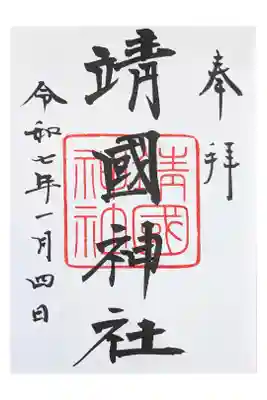 奉拜
靖國神社
靖國神社
令和七年一月四日